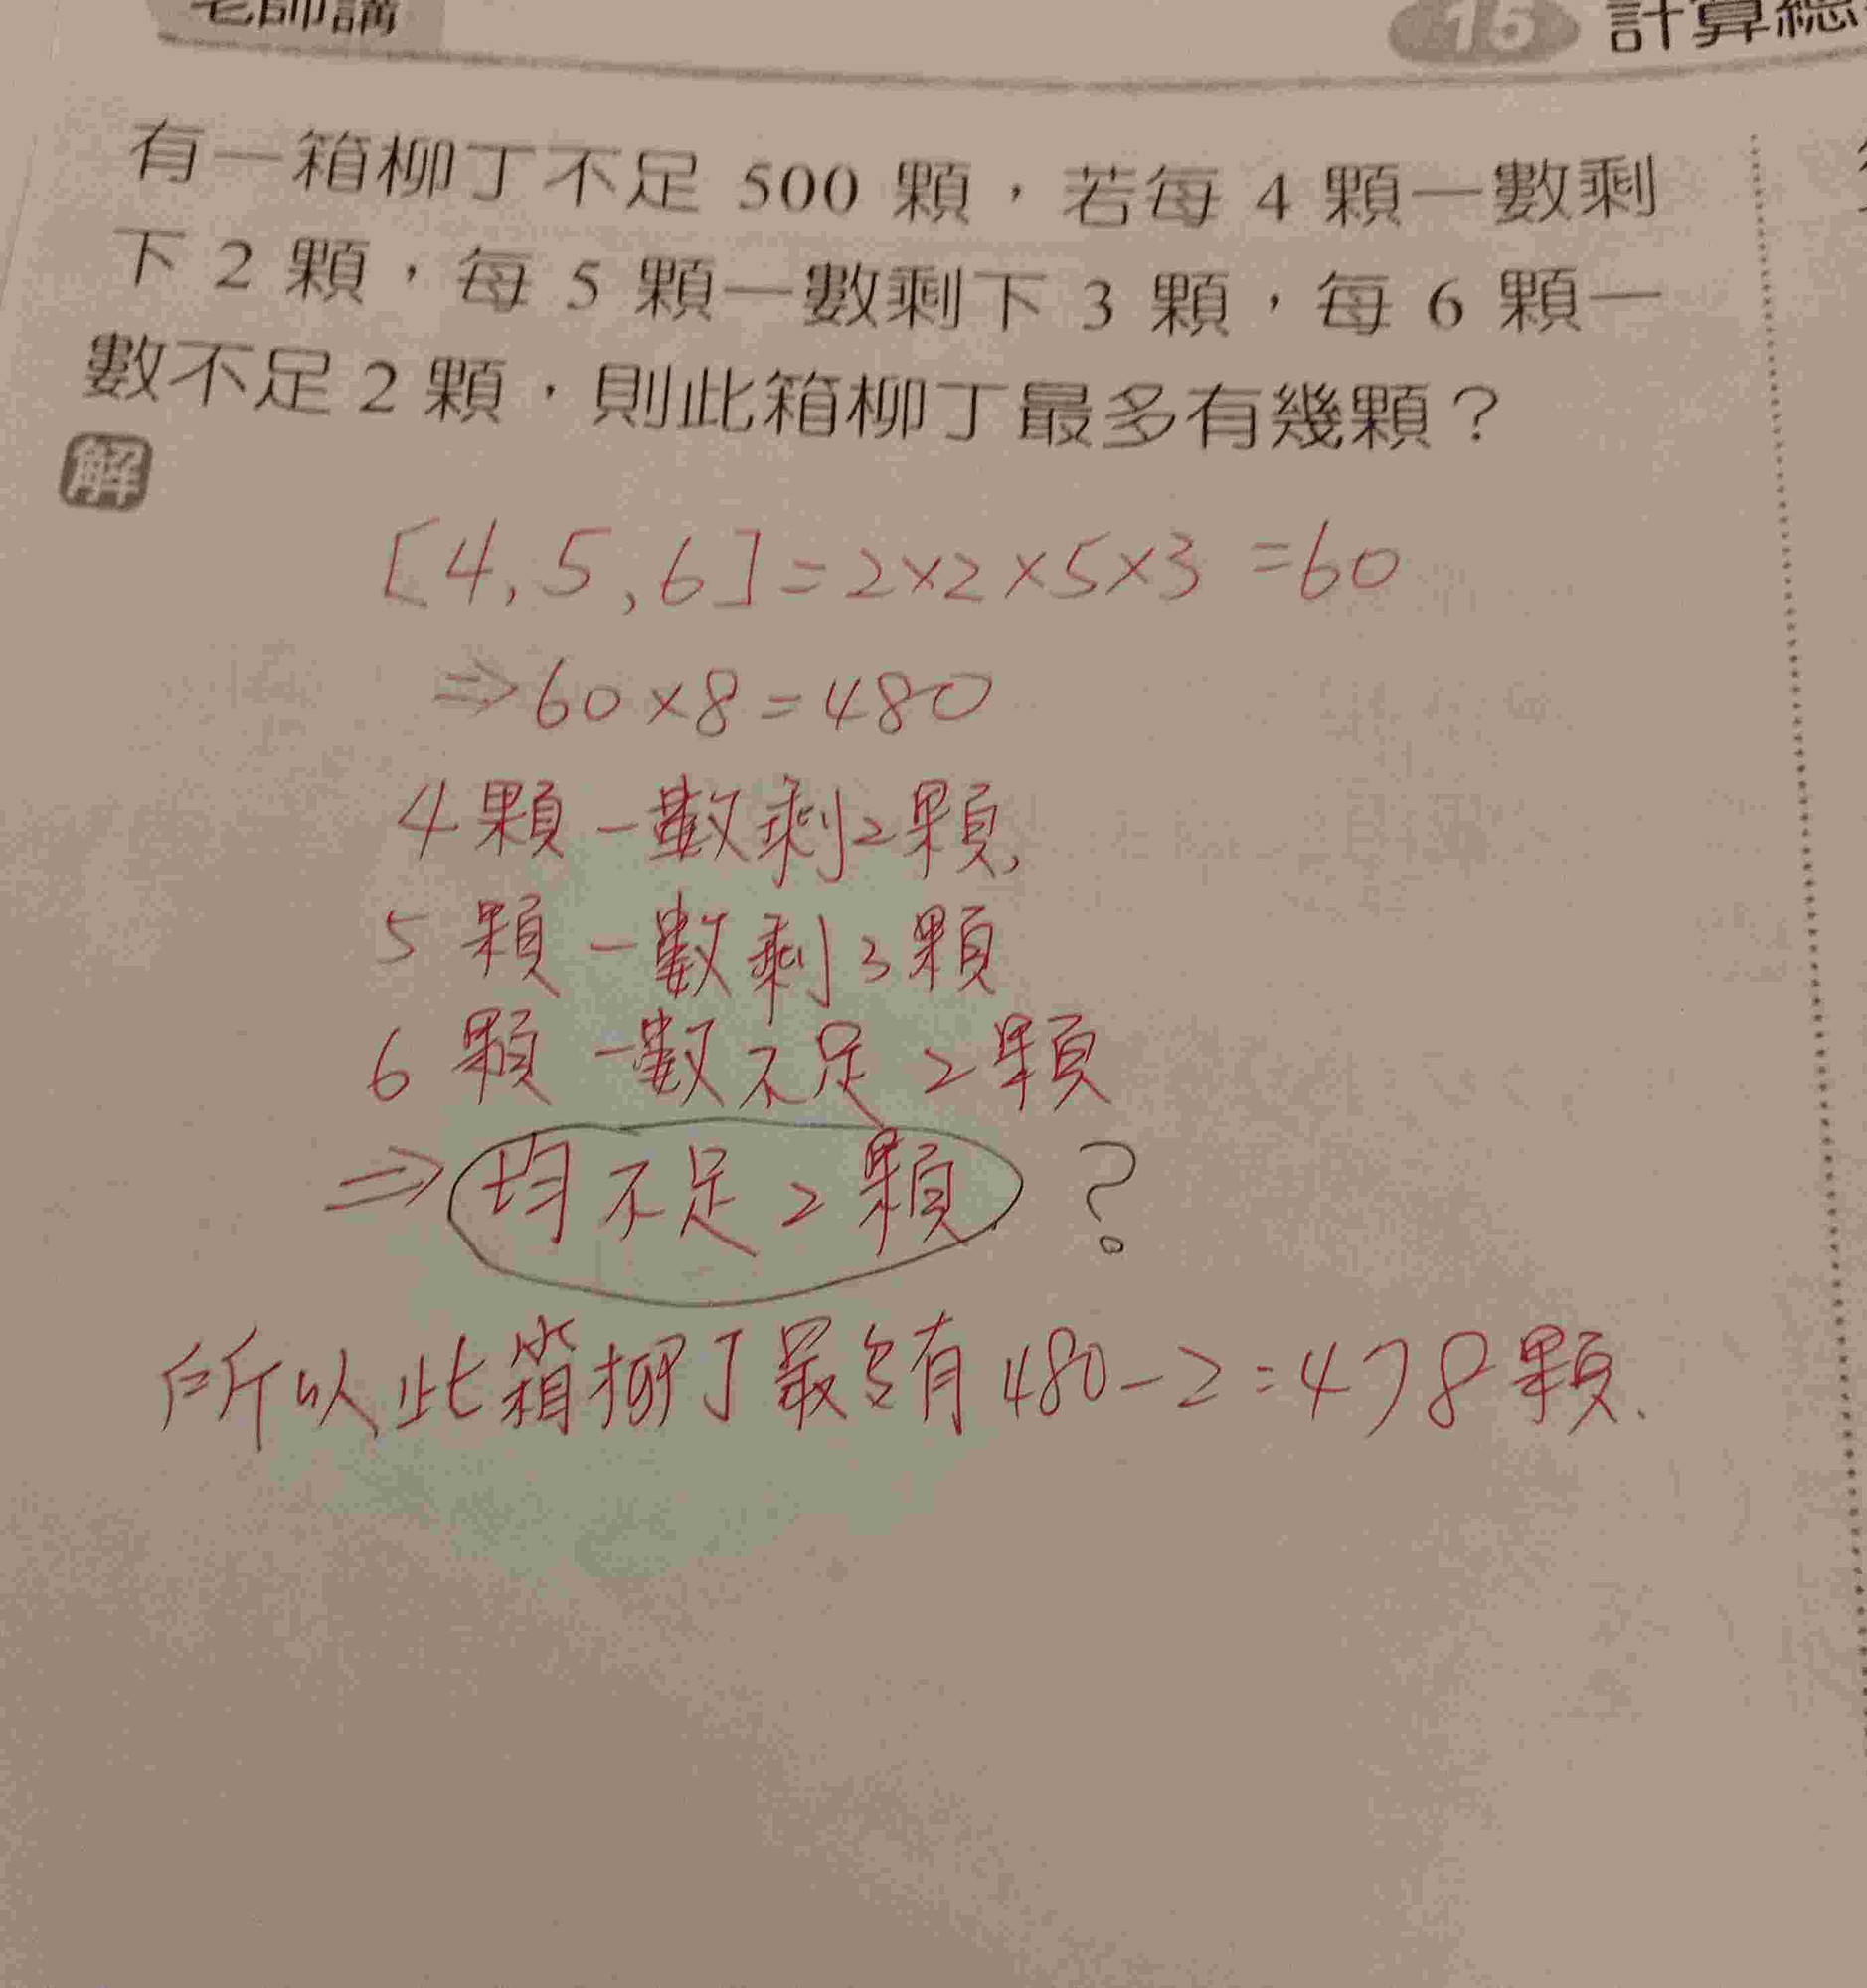 老師講
15 計算總
有一箱柳丁不足 500 顆，若每 4 顆一數剩
下 2 顆，每 5 顆一數剩下 3 顆，每 6 顆一
數不足 2 顆，則此箱柳丁最多有幾顆？
解
[4,5,6]=2×2×5×3=60
⇒60×8=480
4顆一數剩2顆,
5顆一數剩3顆
6顆一數不足2顆
⇒均不足2顆?
所以此箱柳丁最多有480-2=478顆.